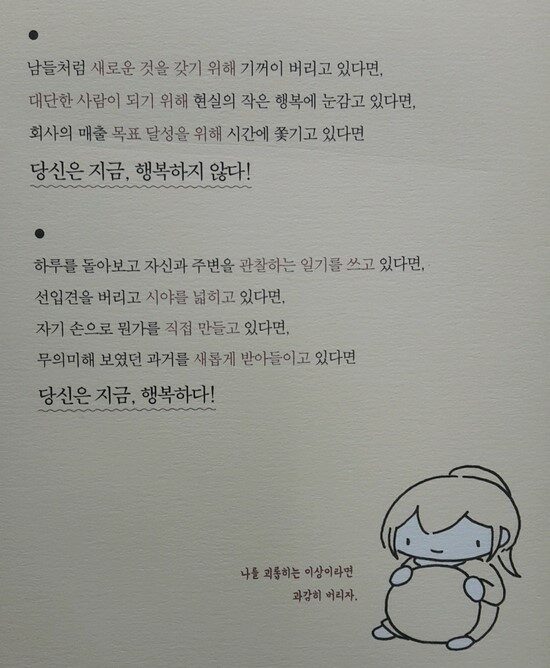 남들처럼 새로운 것을 갖기 위해 기꺼이 버리고 있다면,
대단한 사람이 되기 위해 현실의 작은 행복에 눈감고 있다면,
회사의 매출 목표 달성을 위해 시간에 쫓기고 있다면
당신은 지금, 행복하지 않다!
하루를 돌아보고 자신과 주변을 관찰하는 일기를 쓰고 있다면,
선입견을 버리고 시야를 넓히고 있다면,
자기 손으로 뭔가를 직접 만들고 있다면,
무의미해 보였던 과거를 새롭게 받아들이고 있다면
당신은 지금, 행복하다!
나를 괴롭히는 이상이라면
과감히 버리자.